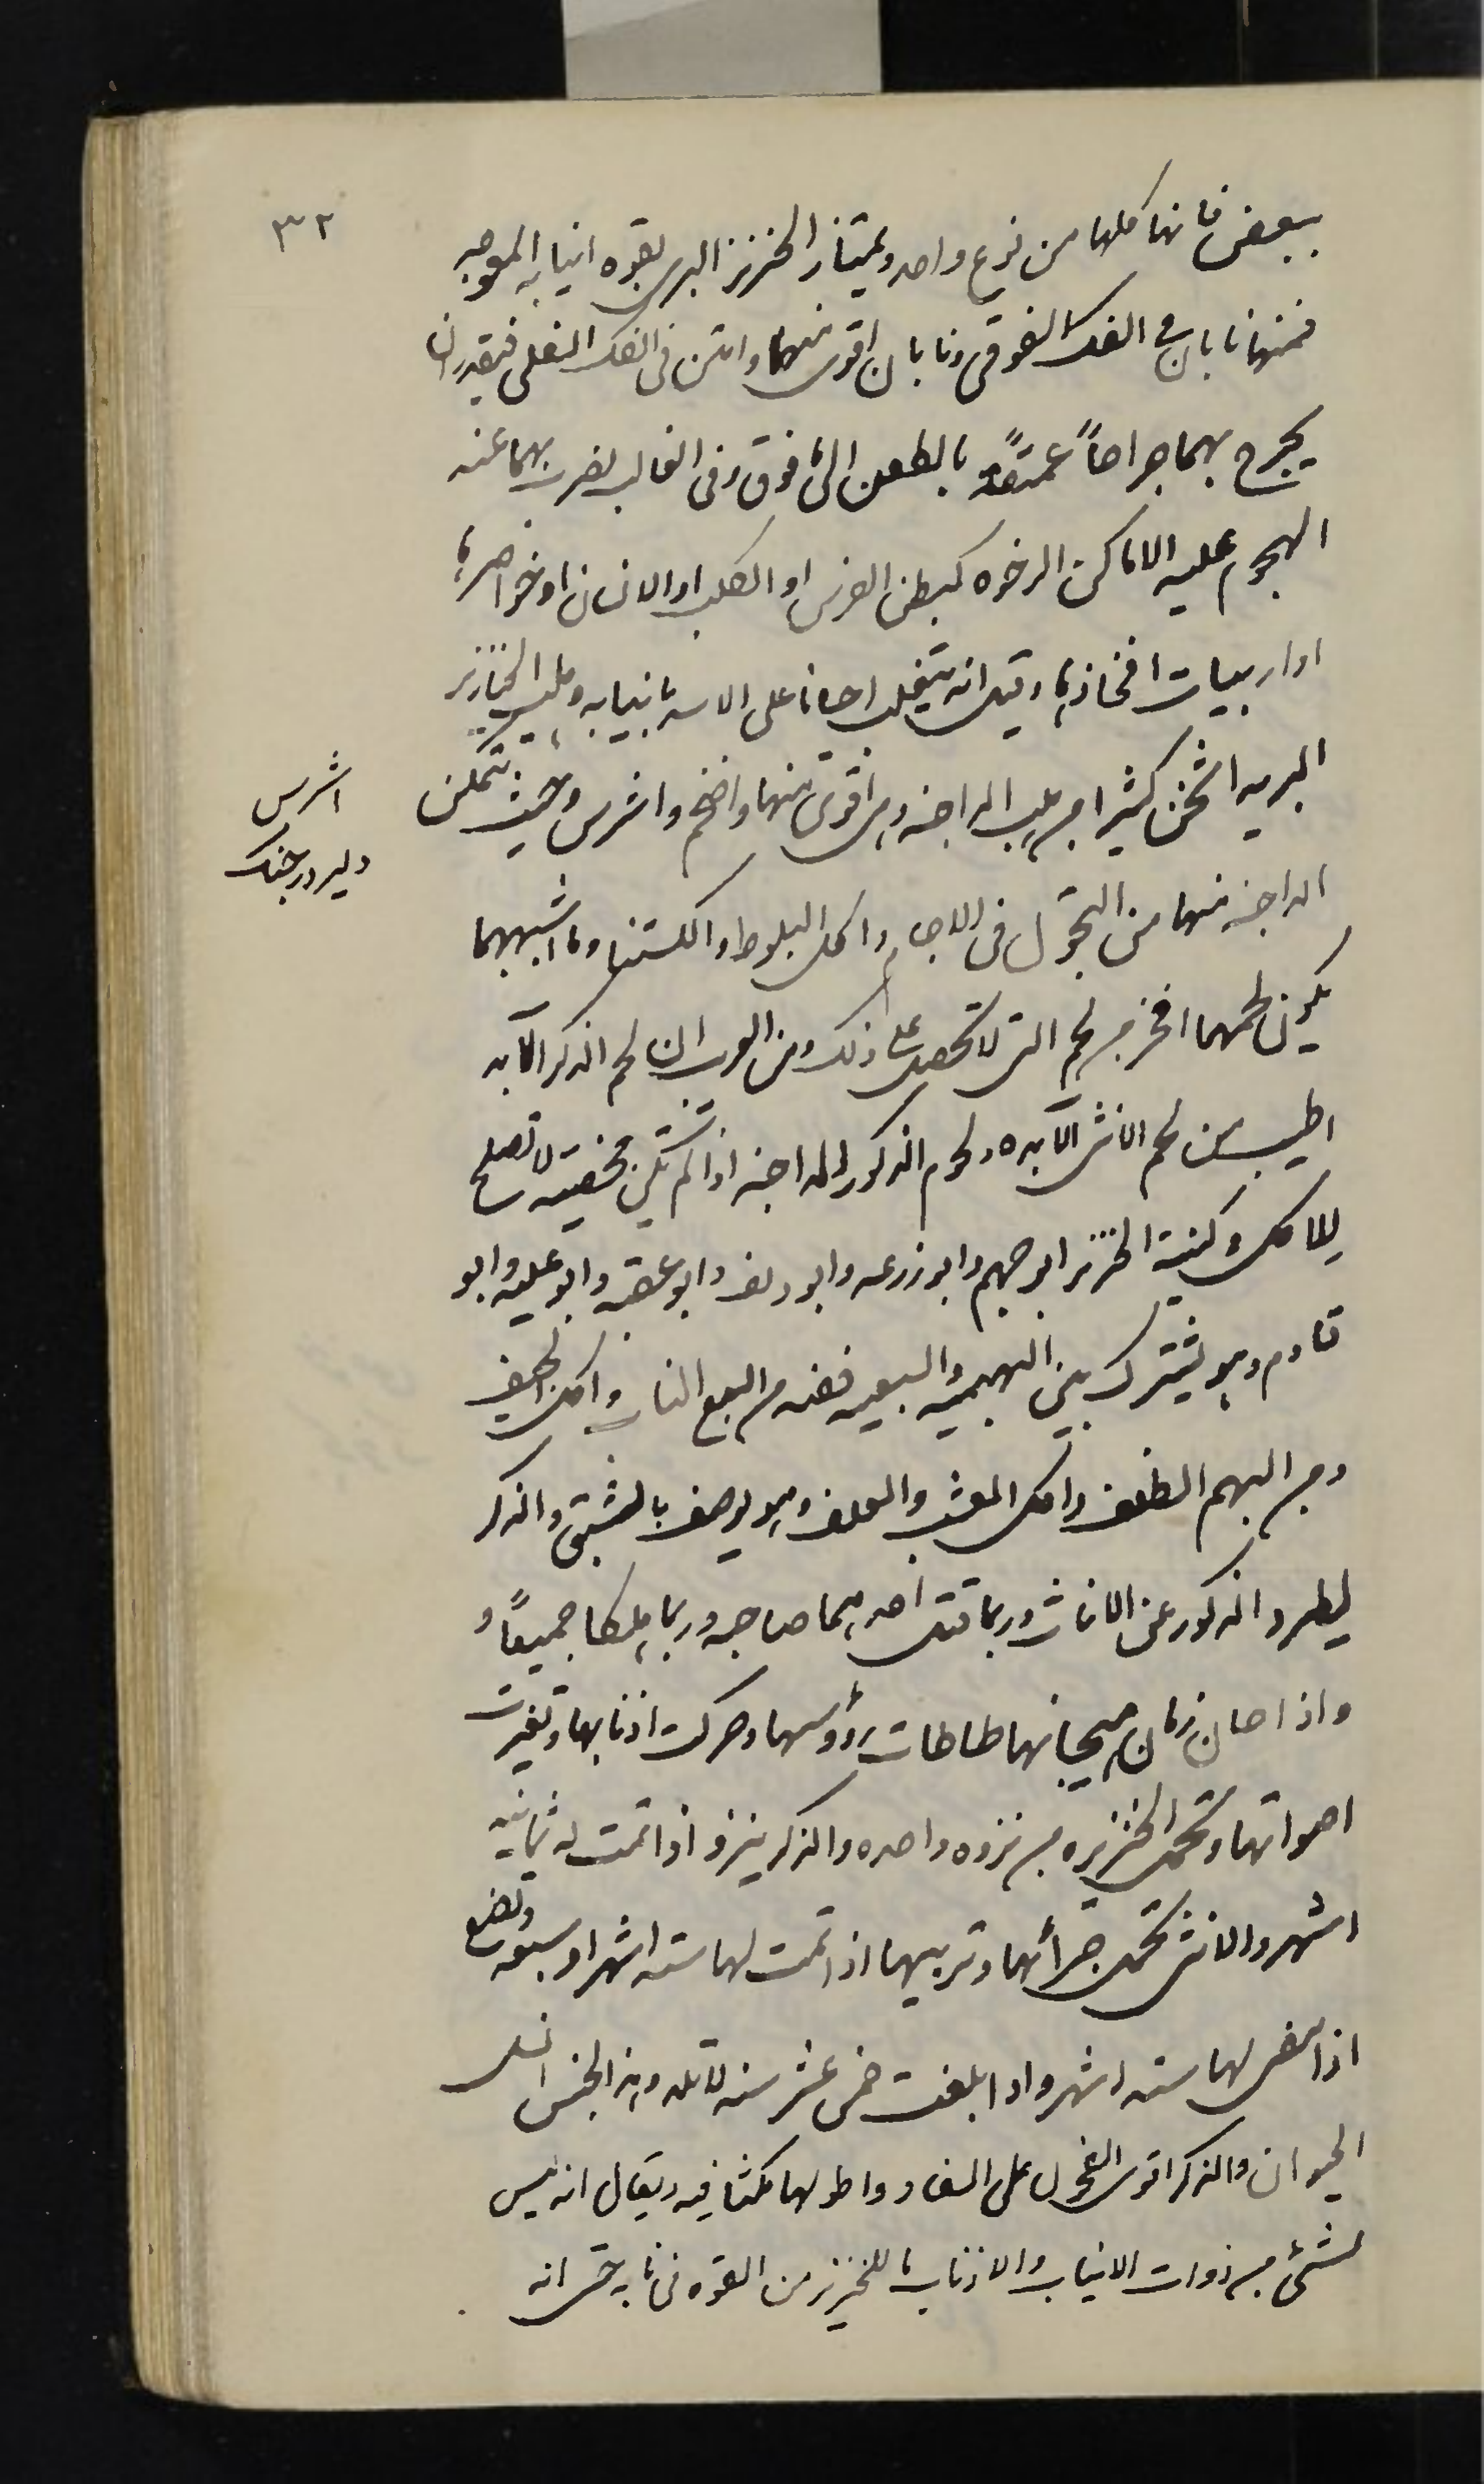 ٣٢
ببعض فانها كلها من نوع واحد ويمتاز الخنزير البرى بقوه انيابه المعوجه
فمنها نابان فى الفك الفوقى ونابان اقوى منهما وامتن فى الفك السفلى فيقدر ان
يجرح بهما جراحاً عميقةً بالطعن الى فوق وفى الغالب يضرب بهما عند
الهجوم عليه الاماكن الرخوه كبطن الفرس او الكلب او الانسان او خواصرها
او اربيات افخاذها وقيل انه يتغلب احيانا على الاسد بانيابه وهلب الخنازير
البريه اخشن كثيرا من هلب الداجنه وهى اقوى منها واضخم واشرس وحيث تتمكن
اشرس
دلير در جنگ
الداجنه منها من التجول فى الاجام واكل البلوط والكستنا وما اشبههما
يكون لحمها افخر من لحم التى لا تحصل على ذلك ومن الغريب ان لحم الذكر الآبد
اطيب من لحم الانثى الآبده ولحوم الذكور الداجنه اذا لم تكن مخصيه لا تصلح
للاكل وكنية الخنزير ابو جهم وابو زرعه وابو دلف وابو عقبه وابو عليه وابو
قادم وهو يشترك بين البهيميه والسبعيه ففيه من السبع الناب واكل الجيف
ومن البهم الظلف واكل العشب والعلف وهو يوصف بالشبق والذكر
يطرد الذكور عن الاناث وربما قتل احدهما صاحبه وربما هلكا جميعاً و
واذا حان زمان هيجانها طاطات رؤوسها وحركت اذنابها وتغيرت
اصواتها وتحمل الخنزيره من نزوه واحده والذكر ينزو اذا تمت له ثمانيه
اشهر والانثى تحمل جرائها وتربيها اذا تمت لها سته اشهر او سبعه وتضع
اذا مضى لها سته اشهر واذا بلغت خمس عشر سنه لا تلد وهذا الجنس انسل
الحيوان والذكر اقوى الفحول على السفاد واطولها مكثا فيه ويقال انه ليس
لشئ من ذوات الانياب والاذناب ما للخنزير من القوه فى نابه حتى انه